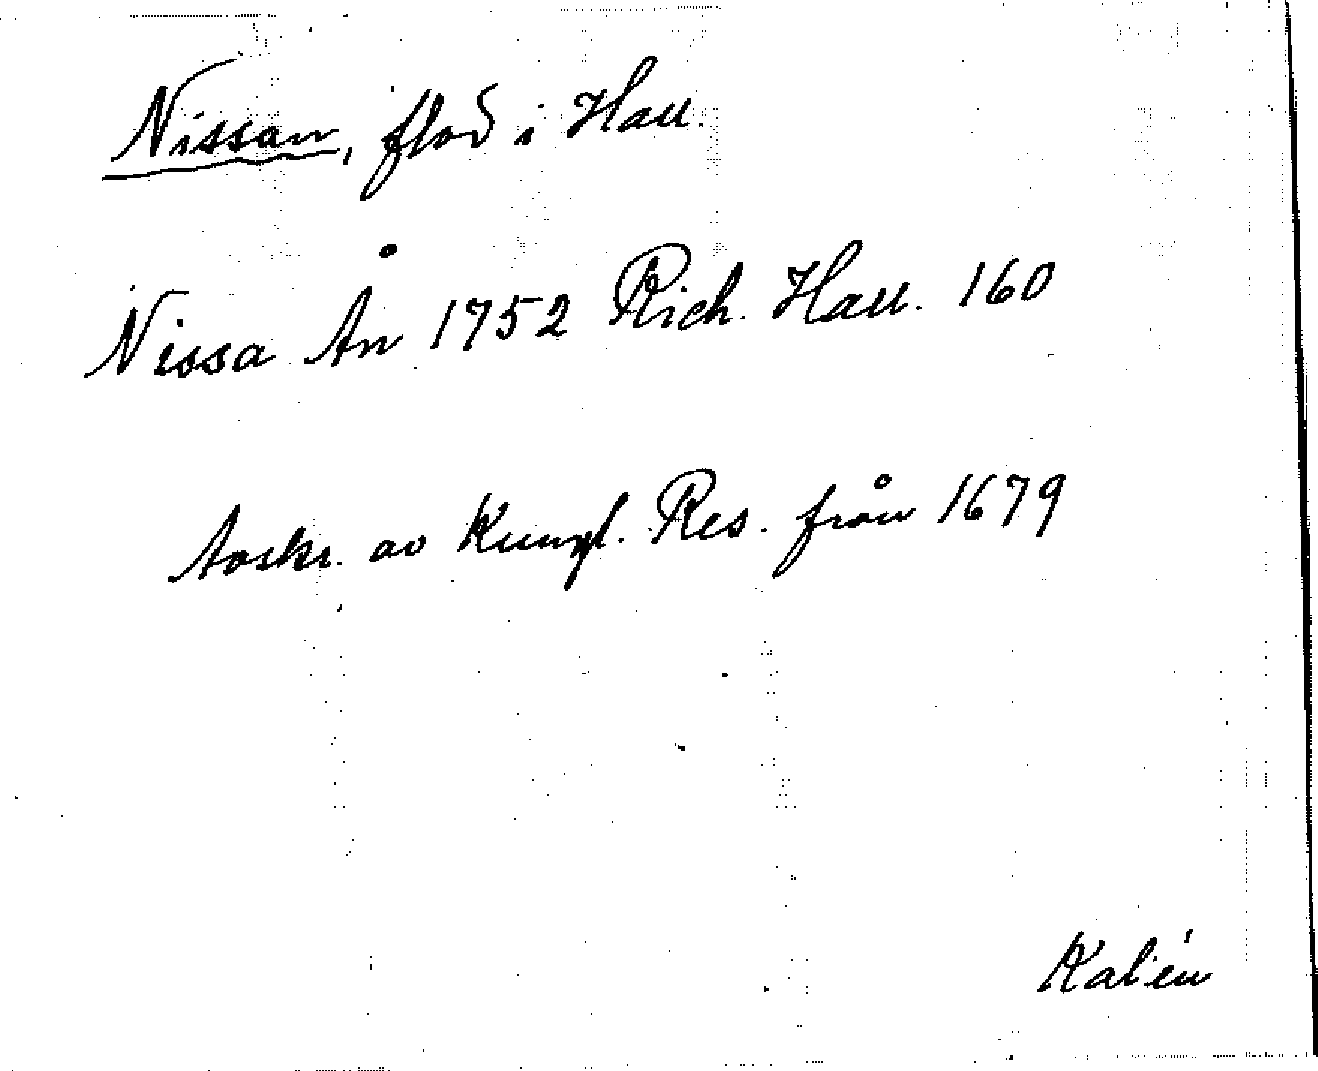 Nissan, flod i Hall.
Nissa Ån 1752 Rich. Hall. 160
Avskr. av Kungl. Res. från 1679
Kalén